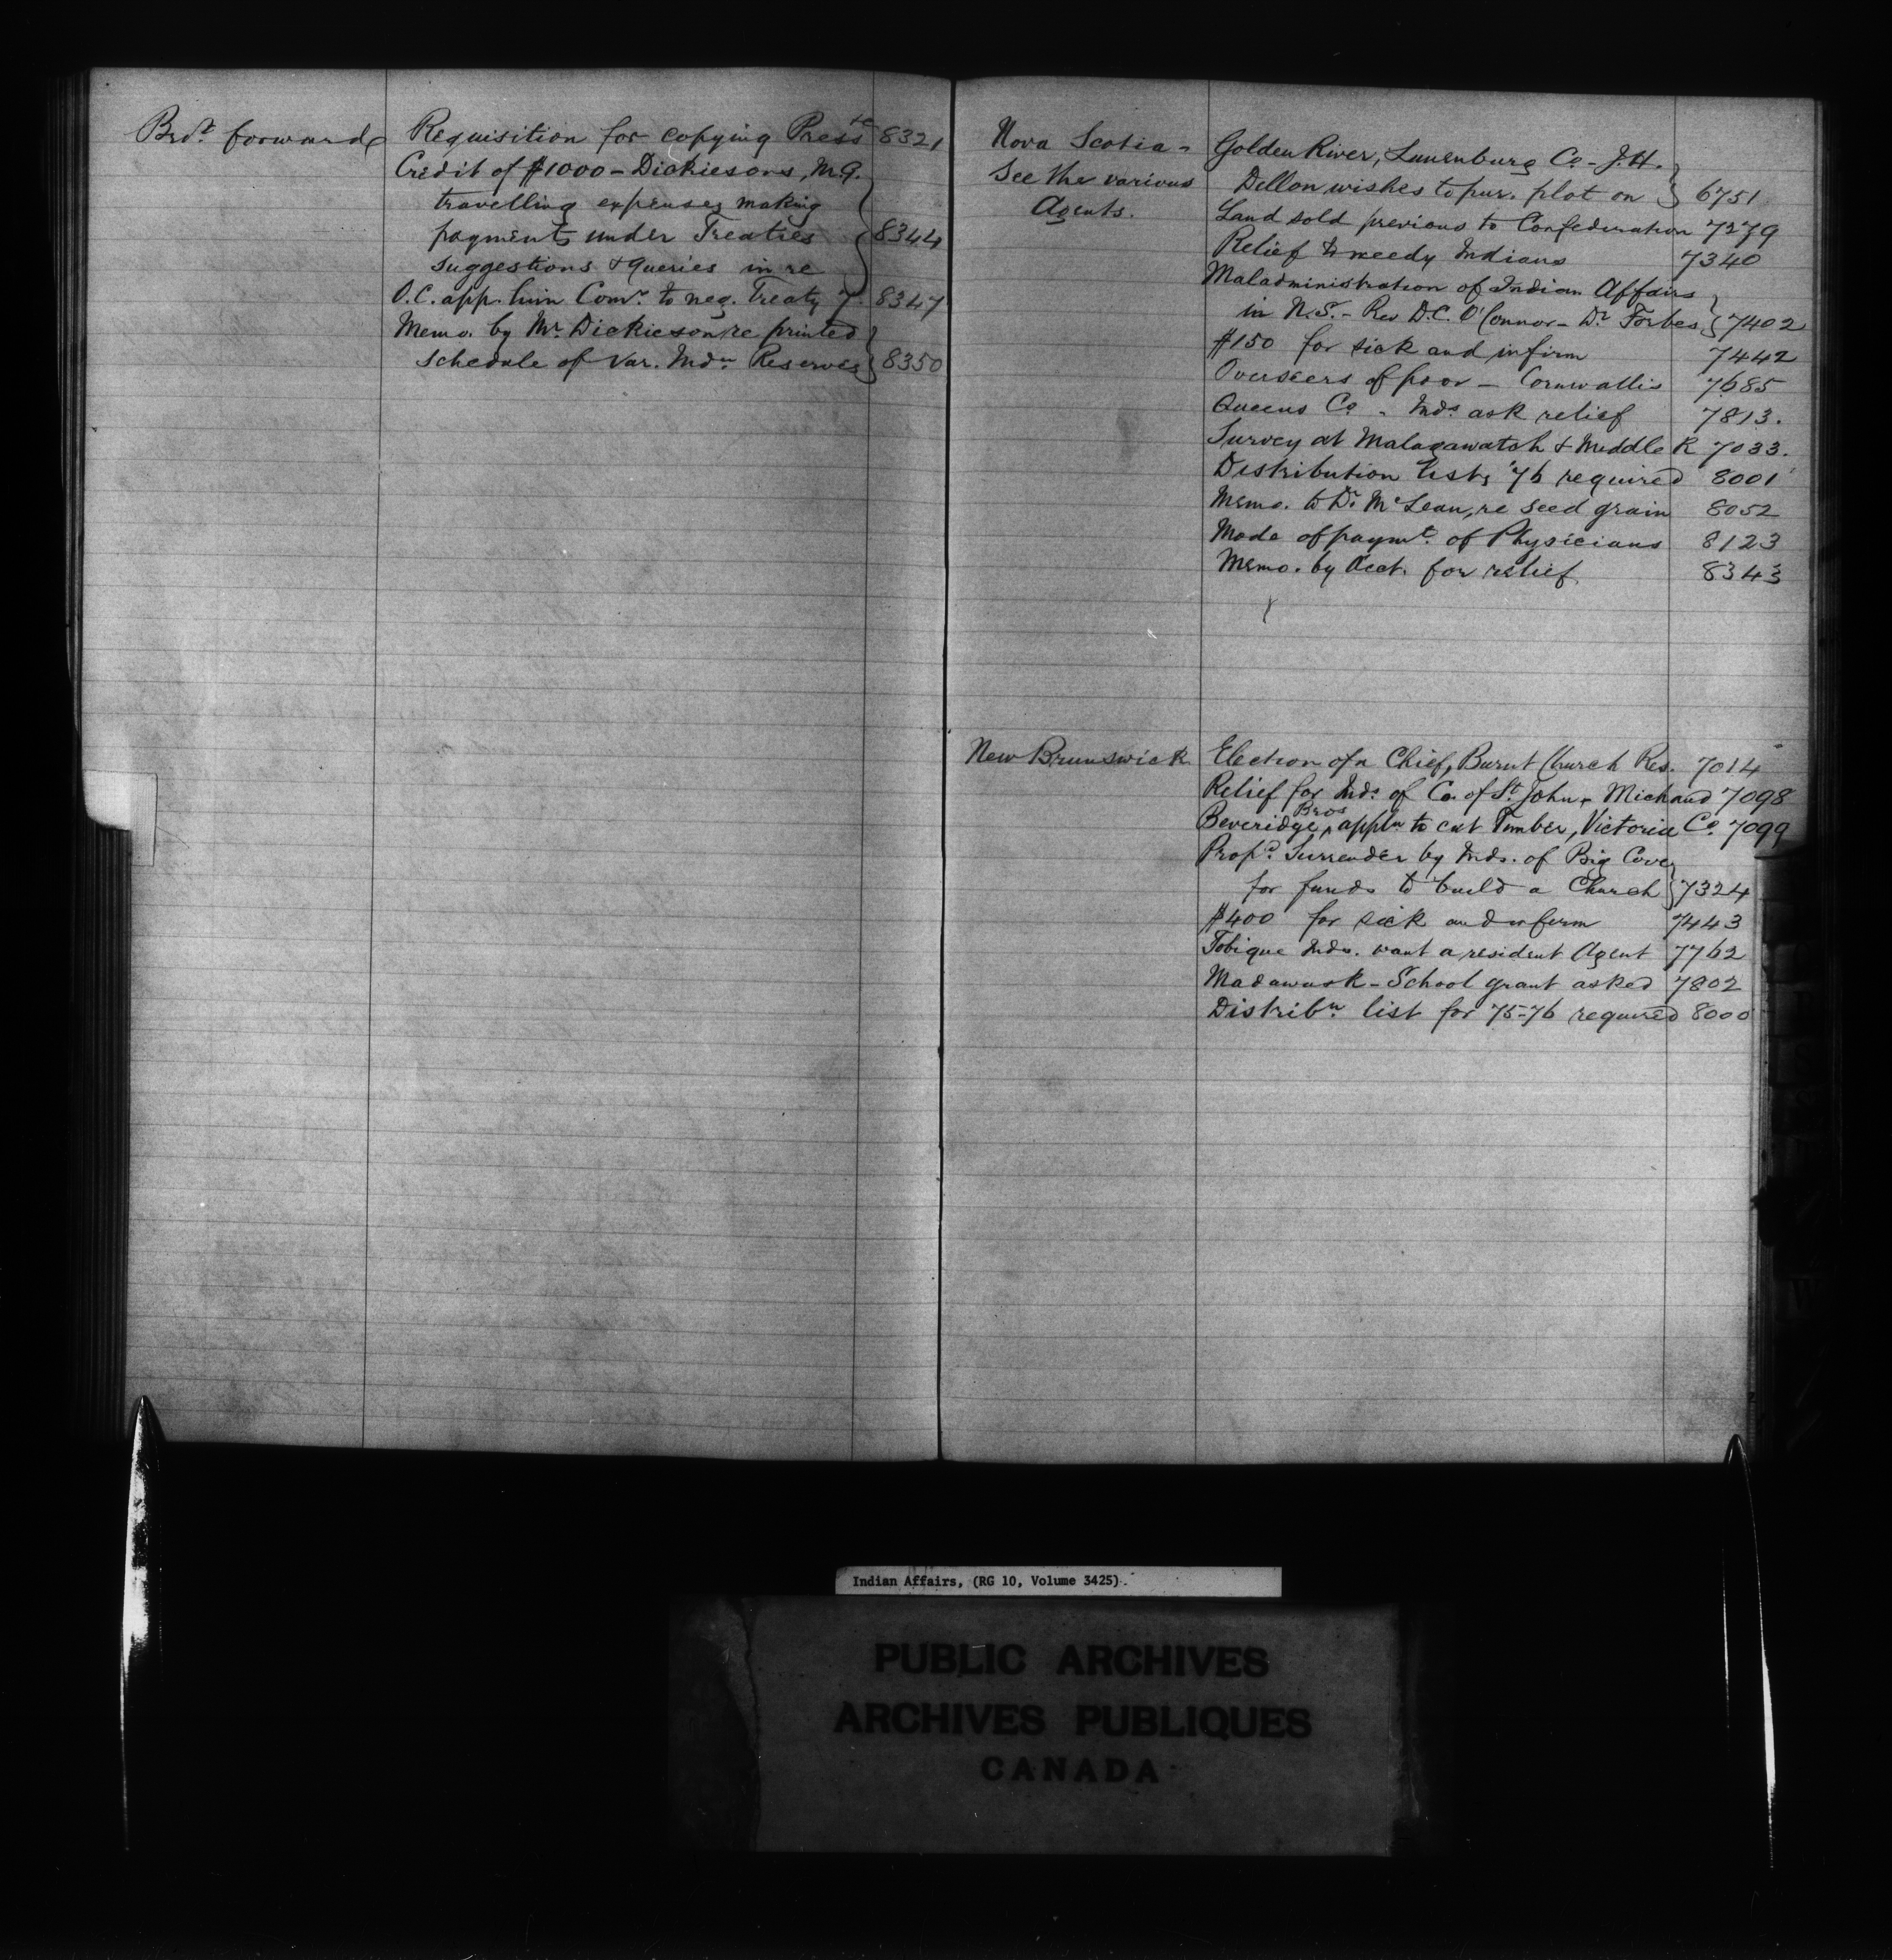 Brot. forward
Requisition for copying Press &c 8321
Credit of $1000 - Dickiesons, M.G.
travelling expenses making
payments under Treaties 8344
suggestions & queries in re
O.C. app. him Comr. to neg. Treaty 7. 8347
Memo. by Mr. Dickieson re printed
schedule of Var. Indn. Reserves 8350
Nova Scotia -
See the various
Agents.
Golden River, Lunenburg Co - J.H.
Dellon wishes to pur. plot on 6751
Land sold previous to Confederation 7279
Relief to needy Indians 7340
Maladministration of Indian Affairs
in N.S. - Rev D.C. O'Connor - Dr. Forbes 7402
$150 for sick and infirm 7442
Overseers of poor - Cornwallis 7685
Queens Co. - Inds. ask relief 7813.
Survey at Malagawatch & Middle R 7033.
Distribution lists '76 required 8001
Memo. to Dr. McLean, re seed grain 8052
Mode of paymt. of Physicians 8123
Memo. by Acct. for relief 8343
New Brunswick
Election of a Chief, Burnt Church Res. 7014
Relief for Inds. of Co. of St. John - Michaud 7098
Beveridge Bros appln to cut Timber, Victoria Co. 7099
Propd. Surrender by Inds. of Big Cove
for funds to build a Church 7324
$400 for sick and infirm 7443
Tobique Inds. want a resident Agent 7762
Madawask - School grant asked 7802
Distribn. list for 75-76 required 8000
Indian Affairs, (RG 10, Volume 3425).
PUBLIC ARCHIVES
ARCHIVES PUBLIQUES
CANADA